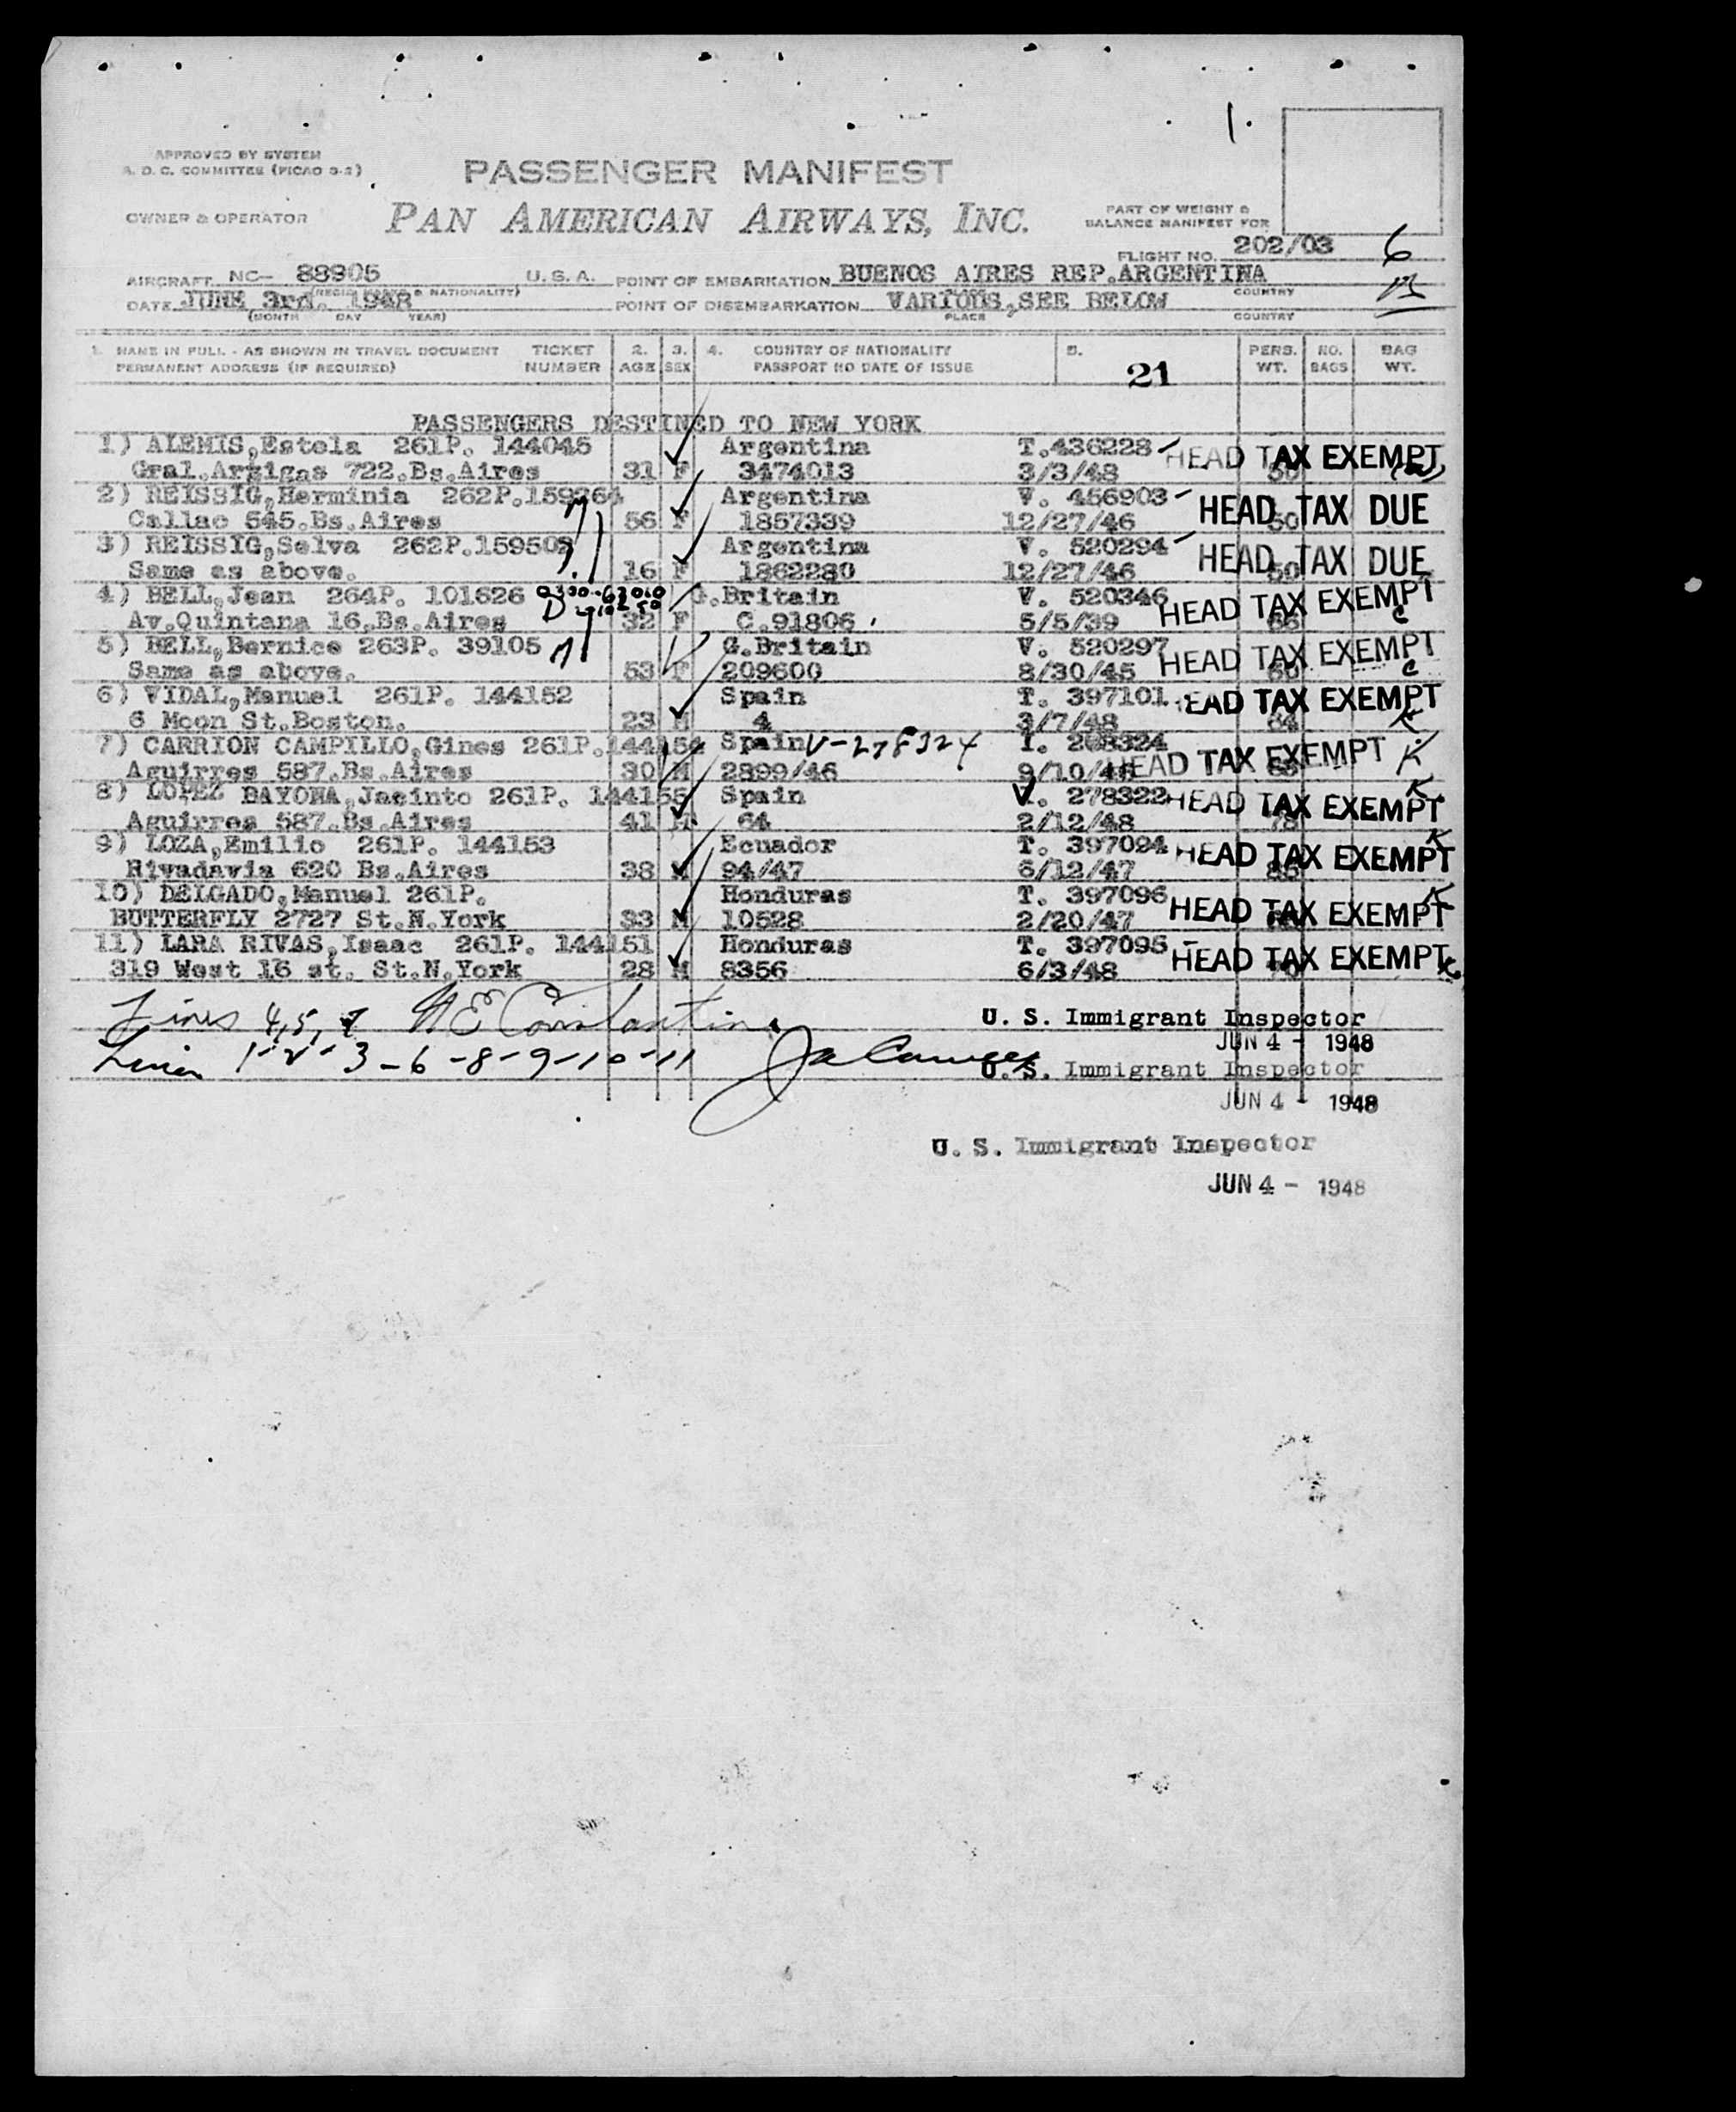 1.
APPROVED BY SYSTEM
A. D. C. COMMITTEE (PICAO 9-2)
PASSENGER MANIFEST
OWNER & OPERATOR PAN AMERICAN AIRWAYS, INC.
PART OF WEIGHT &
BALANCE MANIFEST FOR
FLIGHT NO. 202/03 6
AIRCRAFT NC- 88905 U. S. A. POINT OF EMBARKATION BUENOS AIRES REP.ARGENTINA
NATIONALITY) COUNTRY
DATE JUNE 3rd. 1948 POINT OF DISEMBARKATION VARIOUS, SEE BELOW
(MONTH DAY YEAR) PLACE COUNTRY
1. NAME IN FULL - AS SHOWN IN TRAVEL DOCUMENT TICKET 2. 3. 4. COUNTRY OF NATIONALITY 5. PERS. NO. BAG
PERMANENT ADDRESS (IF REQUIRED) NUMBER AGE SEX PASSPORT NO DATE OF ISSUE 21 WT. BAGS WT.
PASSENGERS DESTINED TO NEW YORK
1) ALEMIS,Estela 261P. 144045 Argentina T.436228 HEAD TAX EXEMPT
Gral.Artigas 722.Bs.Aires 31 F 3474013 3/3/48 50
2) REISSIG,Herminia 262P.159264 Argentina V. 456903 HEAD TAX DUE
Callao 545.Bs.Aires 56 F 1857339 12/27/46 50
3) REISSIG,Selva 262P.159502 Argentina V. 520294 HEAD TAX DUE
Same as above. 16 F 1862280 12/27/46 50
4) BELL,Jean 264P. 101626 G.Britain V. 520346 HEAD TAX EXEMPT
Av.Quintana 16.Bs.Aires 32 F C.91806 5/5/39 c
5) BELL,Bernice 263P. 39105 G.Britain V. 520297 HEAD TAX EXEMPT
Same as above. 53 F 209600 8/30/45 60 c
6) VIDAL,Manuel 261P. 144152 Spain T. 397101 HEAD TAX EXEMPT
6 Moon St.Boston. 23 M 4 3/7/48 64 K
7) CARRION CAMPILLO,Gines 261P.144154 Spain V-278324 HEAD TAX EXEMPT K
Aguirres 587.Bs.Aires 30 M 2899/46 9/10/46
8) LOPEZ BAYONA,Jacinto 261P. 144155 Spain V. 278322 HEAD TAX EXEMPT K
Aguirres 587.Bs.Aires 41 M 64 2/12/48 78
9) LOZA,Emilio 261P. 144153 Ecuador T. 397094 HEAD TAX EXEMPT K
Rivadavia 620 Bs.Aires 38 M 94/47 6/12/47
10) DELGADO,Manuel 261P. Honduras T. 397096 HEAD TAX EXEMPT K
BUTTERFLY 2727 St.N.York 33 M 10528 2/20/47
11) LARA RIVAS,Isaac 261P. 144151 Honduras T. 397095 HEAD TAX EXEMPT K
319 West 16 st. St.N.York 28 M 8356 6/3/48 70
Lines 4,5,7 U. S. Immigrant Inspector
JUN 4 - 1948
Lines 1-2-3-6-8-9-10-11 U. S. Immigrant Inspector
JUN 4 - 1948
U. S. Immigrant Inspector
JUN 4 - 1948